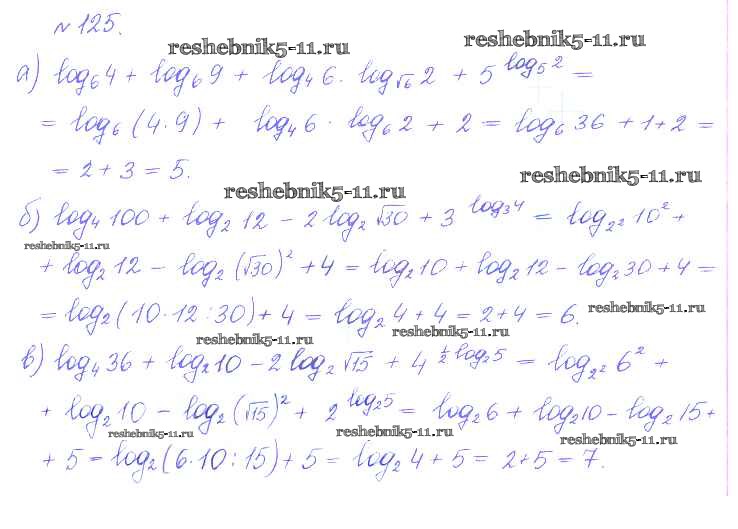 № 125.
reshebnik5-11.ru
reshebnik5-11.ru
а) log₆4 + log₆9 + log₄6 · log_√6 2 + 5^(log₅2) =
= log₆(4·9) + log₄6 · log₆2 + 2 = log₆36 + 1 + 2 =
= 2 + 3 = 5.
reshebnik5-11.ru
reshebnik5-11.ru
б) log₄100 + log₂12 − 2log₂√30 + 3^(log₃4) = log_2² 10² +
reshebnik5-11.ru
+ log₂12 − log₂(√30)² + 4 = log₂10 + log₂12 − log₂30 + 4 =
= log₂(10·12:30) + 4 = log₂4 + 4 = 2 + 4 = 6.
reshebnik5-11.ru
reshebnik5-11.ru
reshebnik5-11.ru
в) log₄36 + log₂10 − 2log₂√15 + 4^(½log₂5) = log_2² 6² +
+ log₂10 − log₂(√15)² + 2^(log₂5) = log₂6 + log₂10 − log₂15 +
reshebnik5-11.ru
reshebnik5-11.ru
reshebnik5-11.ru
+ 5 = log₂(6·10:15) + 5 = log₂4 + 5 = 2 + 5 = 7.